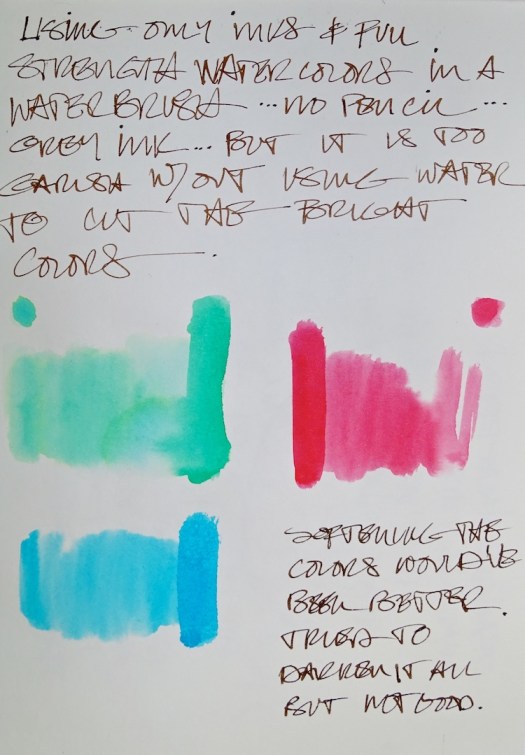 USING ONLY INKS & FULL
STRENGTH WATERCOLORS IN A
WATERBRUSH ... NO PENCIL ...
GREY INK ... BUT IT IS TOO
GARISH W/OUT USING WATER
TO CUT THE BRIGHT
COLORS.
SOFTENING THE
COLORS WOULD'VE
BEEN BETTER.
TRIED TO
DARKEN IT ALL
BUT NOT GOOD.